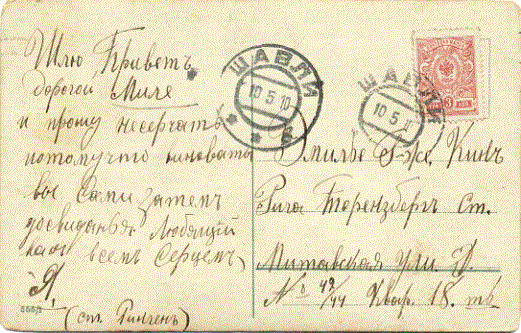 Шлю Приветъ
дорогой Миле
и прошу несерчать
потомучто виноваты
вы сами затемъ
досвиданья Любящий
васъ всемъ Сердцемъ
Я,
(ст. Ринген)
ШАВЛИ
10 5 10
ШАВЛИ
10 5 1
3 коп
Эмилье
Рига Торенсбергъ Ст.
Митавская Ули. Д.
№ 42/44 Квар. 18.